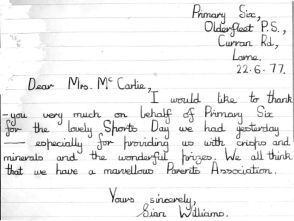 Primary Six,
Olderfleet P.S.,
Curran Rd.,
Larne.
22.6.77.
Dear Mrs. McCarlie,
I would like to thank
you very much on behalf of Primary Six
for the lovely Sports Day we had yesterday
— especially for providing us with crisps and
minerals and the wonderful prizes. We all think
that we have a marvellous Parents Association.
Yours sincerely,
Sian Williams.